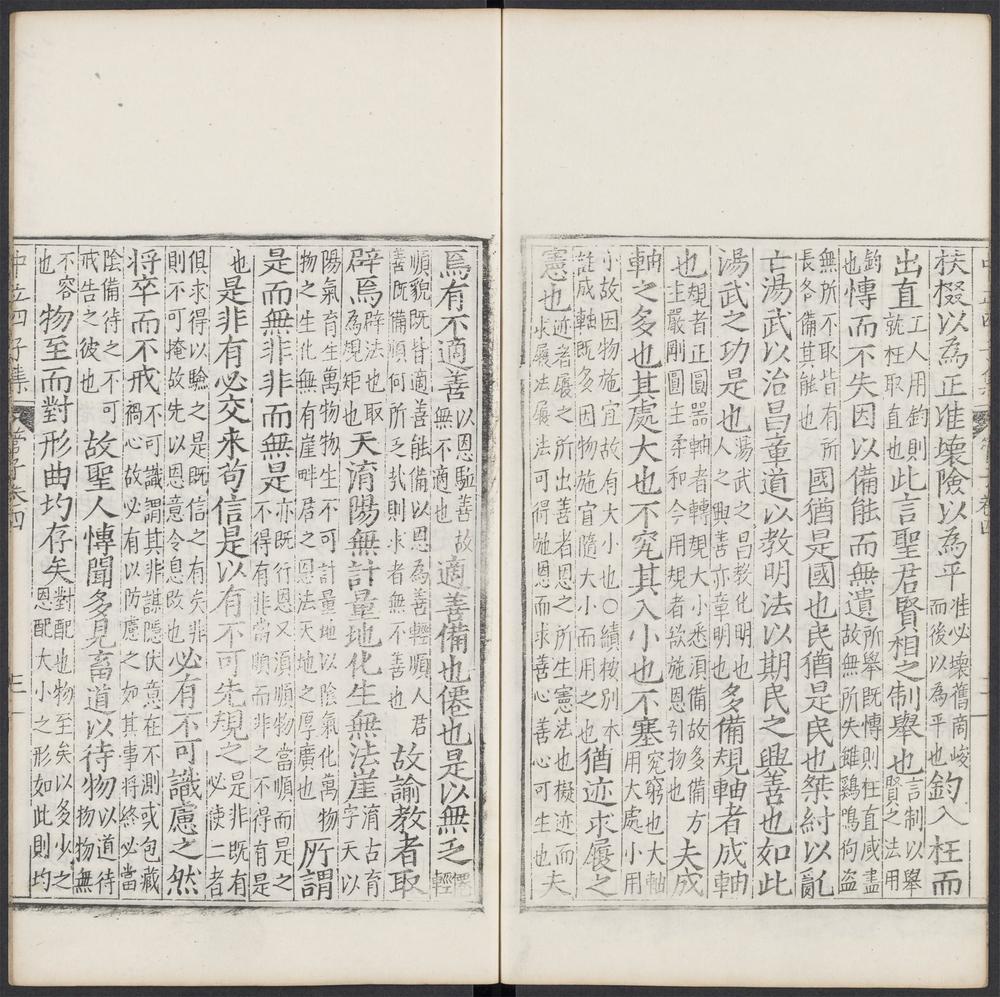 扶樶以為正准壞險以為平准必壞舊商峻而後以為平也鈞入枉而
出直工人用鈞則就枉取直也此言聖君賢相之制舉也言制以舉賢之法用
鈞也博而不失因以備能而無遺所舉既博則枉直咸盡故無所失雖鷄鳴狗盜
無所不取皆有所長各備其能也國猶是國也民猶是民也桀紂以亂
亡湯武以治昌章道以教明法以期民之興善也如此
湯武之功是也湯武之昌教化明也人之興善亦章明也多備規軸者成軸
也規者正圓器軸者轉規大小悉湏備故多備方也主嚴剛圓主柔和今用規者欲施恩引物也夫成
軸之多也其處大也不究其入小也不塞究窮也大軸用大處小用
小故因物施宜故有大小也○績按別本註成軸既多因物施宜隨大小而用之也猶迹求履之
憲也迹者履之所出善者恩之所生憲法也擬迹而求履法履法可得施恩而求善心善心可生也夫
焉有不適善以恩驅善故無不適也適善備也僊也是以無乏僊輕
順貌既皆適善能備以恩為善輕順人君善既備順何所乏㢤則求者無不善也故諭教者取
辟焉辟法也取為規矩也天淯陽無計量地化生無法崖淯古育字天以
陽氣育生萬物物生不可計量地以陰氣化萬物物之生化無有崖畔君之恩法天地之厚廣也所謂
是而無非非而無是亦既行恩又湏順物當順而是之不得有非當順而非之不得有是
也是非有必交来苟信是以有不可先規之是非既有必使二者
俱求得以驗之是既信之有矣非則不可掩故先以恩意令息改也必有不可識慮之然
將卒而不戒不可識謂其非謀隱伏意在不測或包藏禍心故必有以防慮之如其事將終必當
陰備待之不可戒告之彼也故聖人慱聞多見畜道以待物以道待物物無
不容也物至而對形曲均存矣對配也物至矣以多少之恩配大小之形如此則均
中立四子集 管子卷四 三